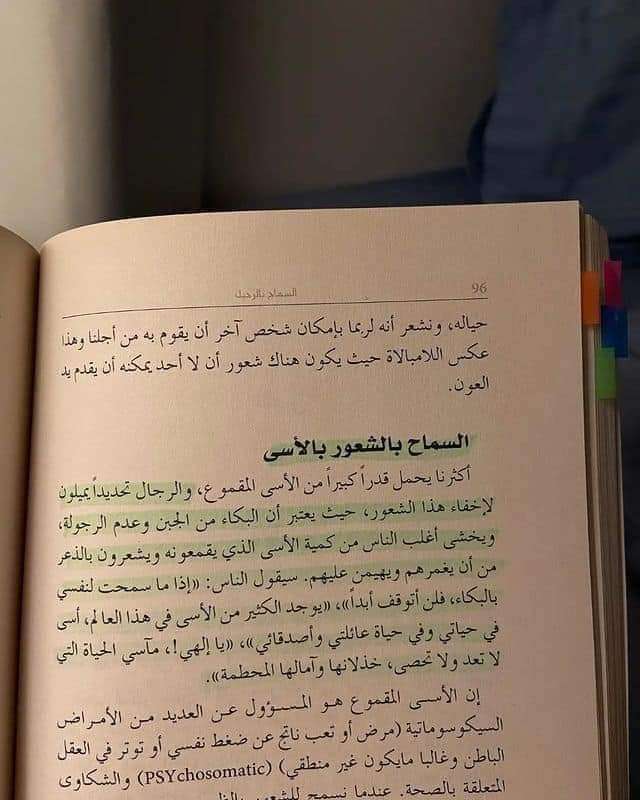 96
السماح بالرحيل
حياله، ونشعر أنه لربما بإمكان شخص آخر أن يقوم به من أجلنا وهذا
عكس اللامبالاة حيث يكون هناك شعور أن لا أحد يمكنه أن يقدم يد
العون.
السماح بالشعور بالأسى
أكثرنا يحمل قدراً كبيراً من الأسى المقموع، والرجال تحديداً يميلون
لإخفاء هذا الشعور، حيث يعتبر أن البكاء من الجبن وعدم الرجولة،
ويخشى أغلب الناس من كمية الأسى الذي يقمعونه ويشعرون بالذعر
من أن يغمرهم ويهيمن عليهم. سيقول الناس: «إذا ما سمحت لنفسي
بالبكاء، فلن أتوقف أبداً»، «يوجد الكثير من الأسى في هذا العالم، أسى
في حياتي وفي حياة عائلتي وأصدقائي»، «يا إلهي!، مآسي الحياة التي
لا تعد ولا تحصى، خذلانها وآمالها المحطمة».
إن الأسى المقموع هو المسؤول عن العديد من الأمراض
السيكوسوماتية (مرض أو تعب ناتج عن ضغط نفسي أو توتر في العقل
الباطن وغالبا مايكون غير منطقي) (PSYchosomatic) والشكاوى
المتعلقة بالصحة. عندما نسمح للشعور